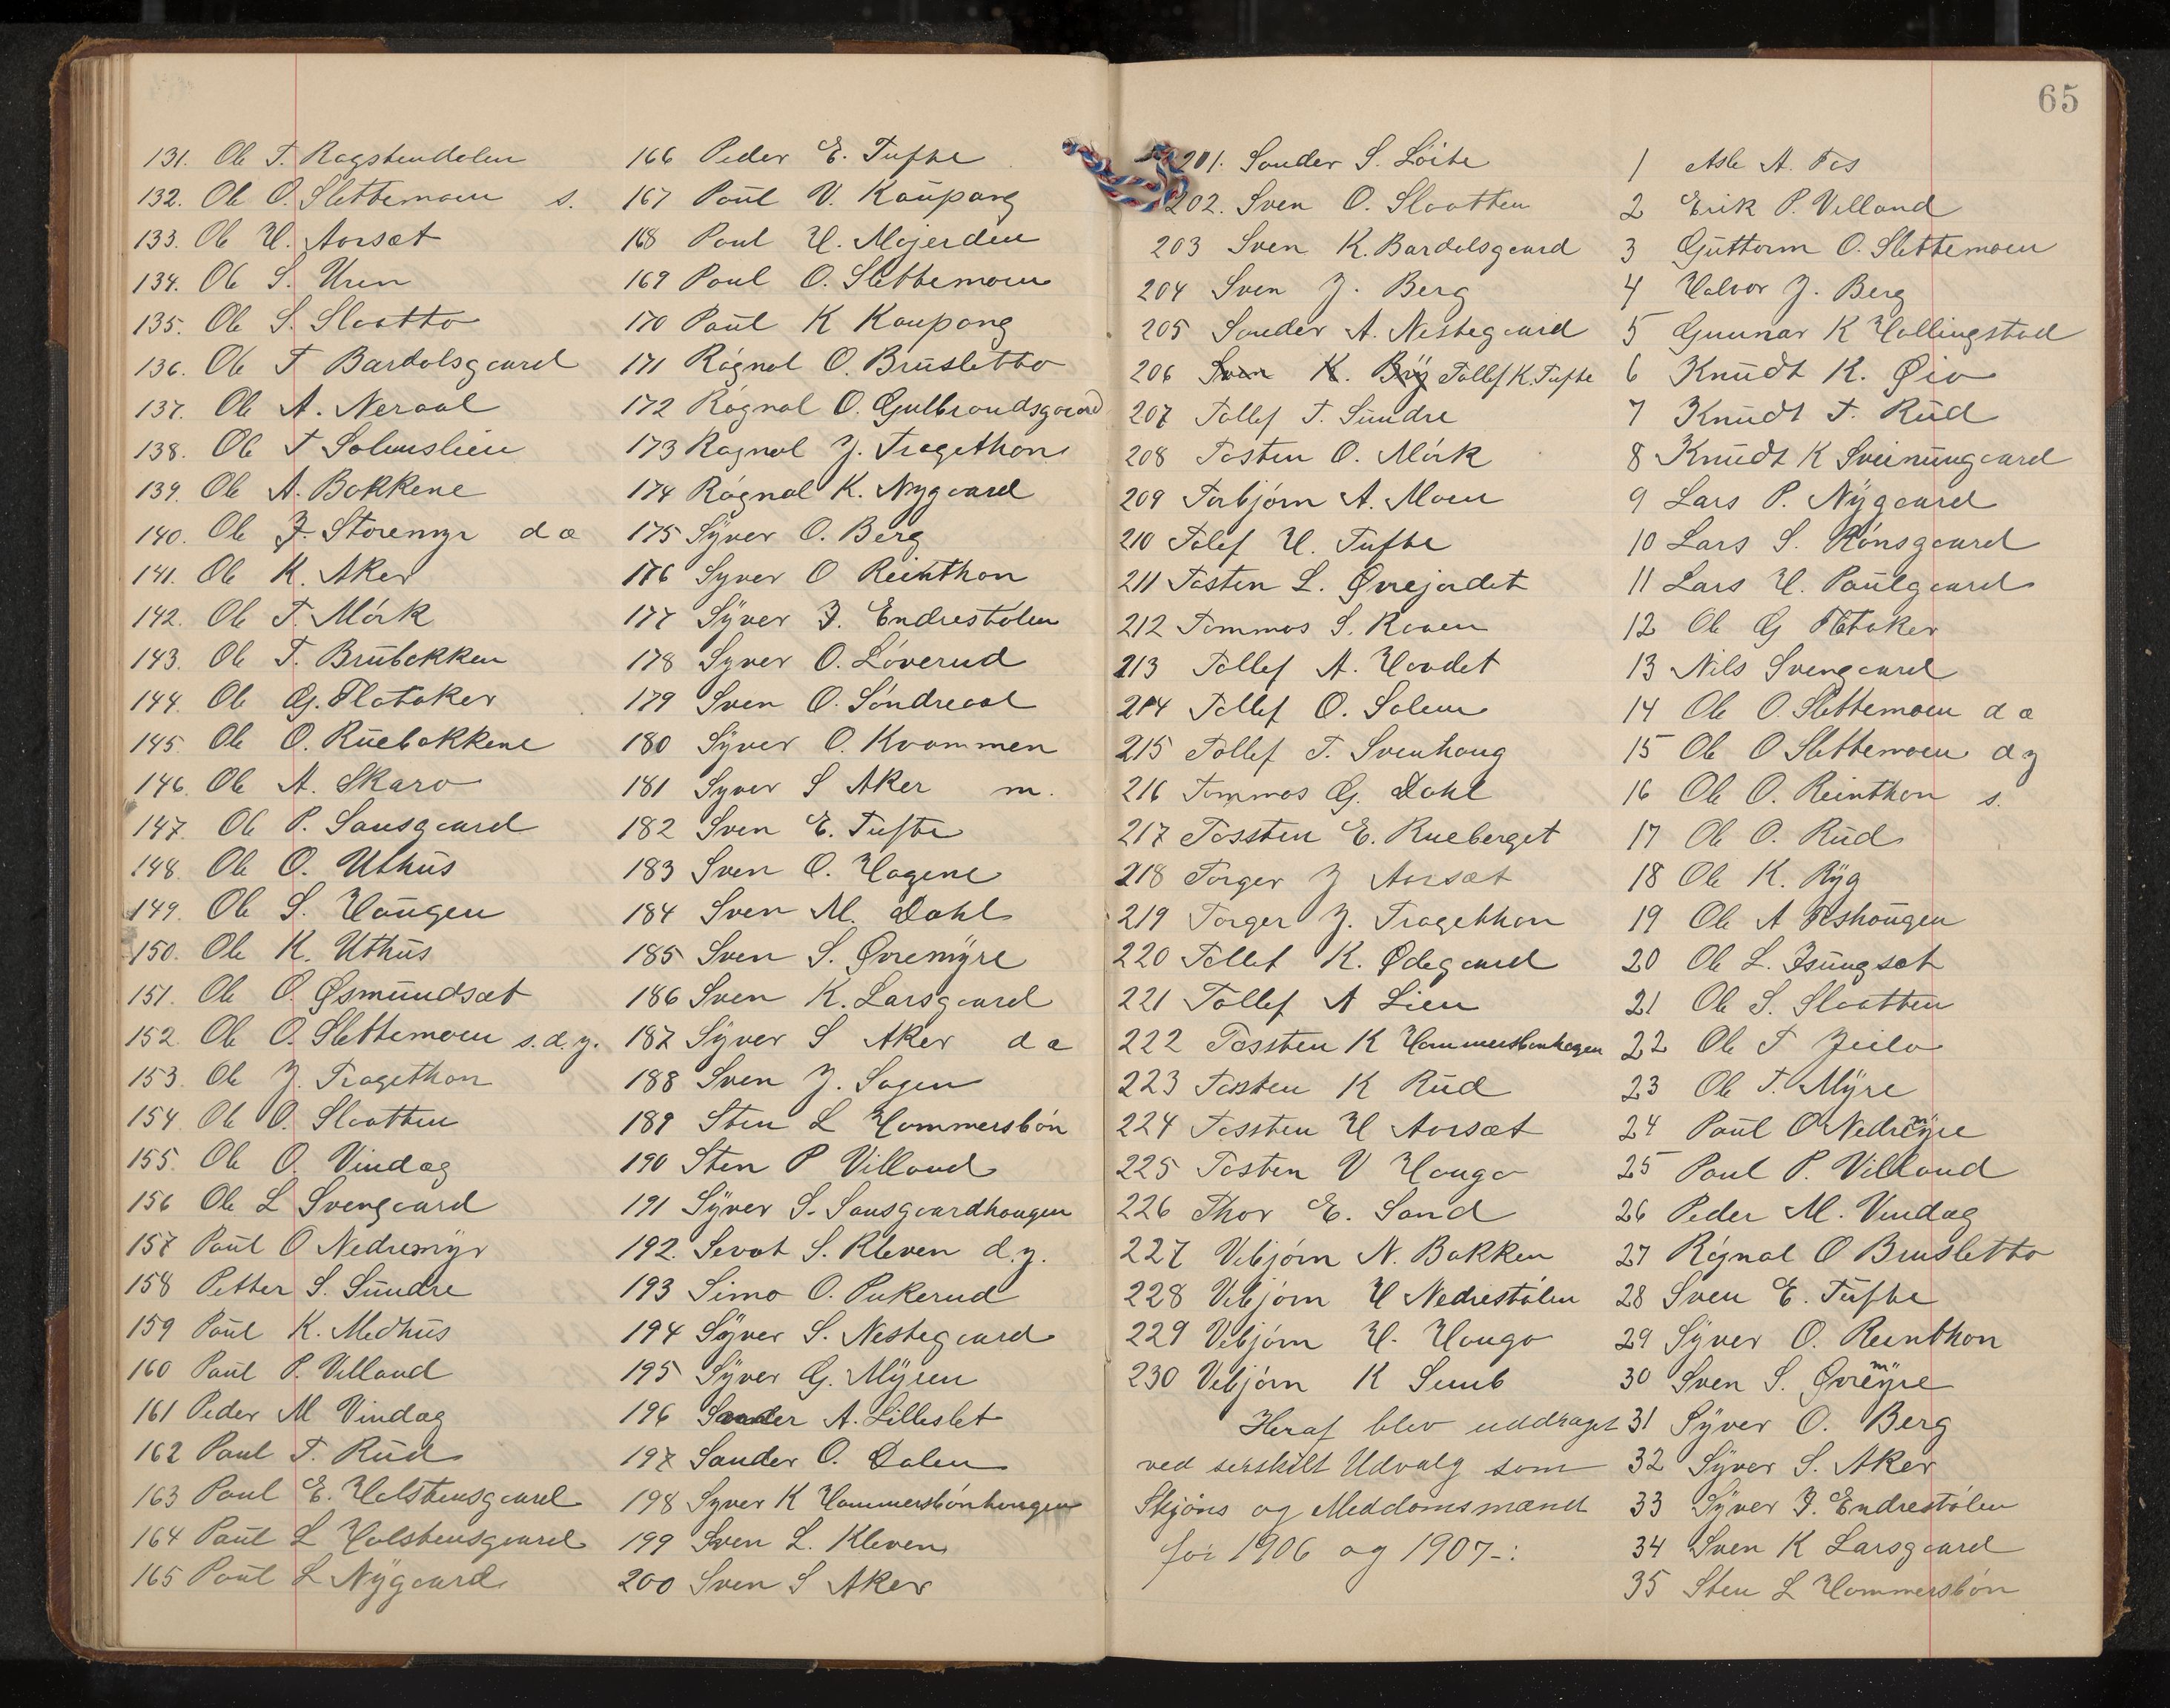 65
131. Ole T. Ragstendalen
132. Ole O. Slettemoen s.
133. Ole H. Aarsæt
134. Ole S. Uren
135. Ole S. Slaatto
136. Ole T Bardolsgaard
137. Ole A. Neraal
138. Ole T Solemslien
139. Ole A. Bakkene
140. Ole J. Storemyr d æ
141. Ole K. Aker
142. Ole T. Mörk
143. Ole T. Brubekken
144. Ole G. Flataker
145. Ole O. Ruebakkene
146. Ole A. Skaro
147. Ole P. Sansgaard
148. Ole O. Uthus
149. Ole S. Haugen
150. Ole K. Uthus
151. Ole O. Øsmundsæt
152. Ole O. Slettemoen s. d. y.
153. Ole J. Tragethon
154. Ole O. Slaatten
155. Ole O. Vindæg
156 Ole L Svengaard
157 Paul O Nedremyr
158 Petter S. Sundre
159 Paul K. Medhus
160 Paul P. Villand
161 Peder M Vindæg
162 Paul T. Rud
163 Paul E. Holstensgaard
164 Paul L Holstensgaard
165 Paul L Nygaard
166 Peder E. Tufte
167 Paul V. Kaupang
168 Paul H. Mejerden
169 Paul O. Slettemoen
170 Paul K Kaupang
171 Rágnal O. Brusletto
172 Rágnal O. Gulbrandsgaard
173 Ragnal J. Tragethon
174 Rágnal K. Nygaard
175 Syver O. Berg
176 Syver O Reinthon
177 Syver J. Endrestölen
178 Syver O. Löverud
179 Sven O. Söndreaal
180 Syver O. Kvammen
181 Syver S Aker m.
182 Sven E. Tufte
183 Sven O. Hagene
184 Sven M. Dahl
185 Sven S. Øvremyre
186 Sven K. Larsgaard
187 Syver S Aker d æ
188 Sven J. Sagen
189 Sten L Hammersbön
190 Sten P Villand
191 Syver S. Sansgaardhaugen
192. Sevat S. Kleven d. y.
193 Simo O. Pukerud
194 Syver S. Nestegaard
195 Syver G. Myren
196 Sander A. Lilleslet
197 Sander O. Dalen
198 Syver K Hammersbönhaugen
199 Sven L. Kleven
200 Sven S Aker
201. Sander S. Löite
202. Sven O. Slaatten
203 Sven K. Bardolsgaard
204 Sven J. Berg
205 Sander A. Nestegaard
206 Sven K. Byg Tollef K. Tufte
207 Tollef T. Sundre
208 Tosten O. Mörk
209 Torbjörn A. Moen
210 Tolef H. Tufte
211 Tosten L. Øvrejordet
212 Tommas S. Raaen
213 Tollef A. Hovdet
214 Tollef O. Solem
215 Tollef T. Svenhaug
216 Tommas G. Dahl
217 Tossten E. Rueberget
218 Torger J Aarsæt
219 Torger J. Tragethon
220 Tollef K. Ødegaard
221 Tollef A Lien
222 Tossten K Hammersbönhagen
223 Tossten K Rud
224 Tossten H Aarsæt
225 Tosten V Haugo
226 Thor E. Sand
227 Vebjörn N. Bakken
228 Vebjörn H Nedrestölen
229 Vebjörn H. Haugo
230 Vebjörn K Sunb
Heraf blev uddraget
ved serskilt Udvalg som
Skjöns og Meddomsmænd
for 1906 og 1907-:
1 Asle A. Tos
2 Erik P. Villand
3 Guttorm O. Slettemoen
4 Halvor J. Berg
5 Gunnar K Hallingstad
6 Knudt K. Øio
7 Knudt T. Rud
8 Knudt K Sveinungaard
9 Lars P. Nygaard
10 Lars S. Rönsgaard
11 Lars H. Paulgaard
12 Ole G Flataker
13 Nils Svengaard
14 Ole O. Slettemoen d æ
15 Ole O Slettemoen d y
16 Ole O. Reinthon s.
17 Ole O. Rud
18 Ole K. Ryg
19 Ole A Reshaugen
20 Ole L. Isungset
21 Ole S. Slaatten
22 Ole T Jeilo
23 Ole T. Myre
24 Paul O Nedremyre
25 Paul P. Villand
26 Peder M. Vindæg
27 Rágnal O Brusletto
28 Sven E. Tufte
29 Syver O. Reinthon
30 Sven S. Øvremyre
31 Syver O. Berg
32 Syver S. Aker
33 Syver J. Endrestölen
34 Sven K Larsgaard
35 Sten L Hammersbön